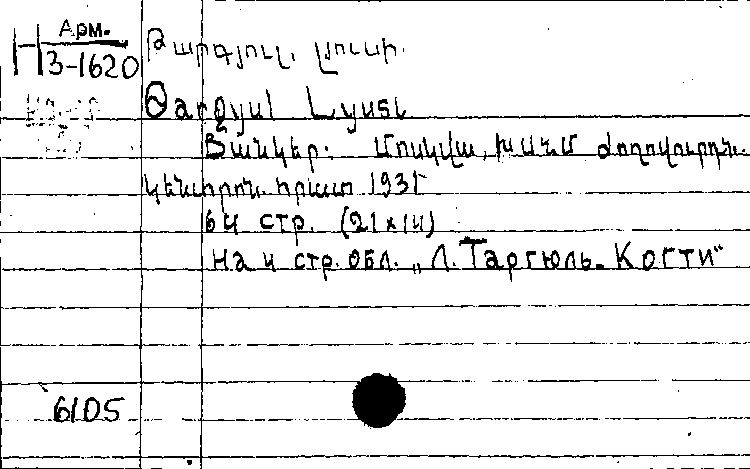 Арм.
H 3-1620
Թարգյուլ, Լյուսի.
Θargyul Lyusi
Ճանկեր: Մոսկվա, ԽՍՀՄ ժողովուրդն.
կենտրոն. հրատ 1931
64 стр. (21×14)
На 4 стр. обл. „Л. Таргюль- Когти“
6105